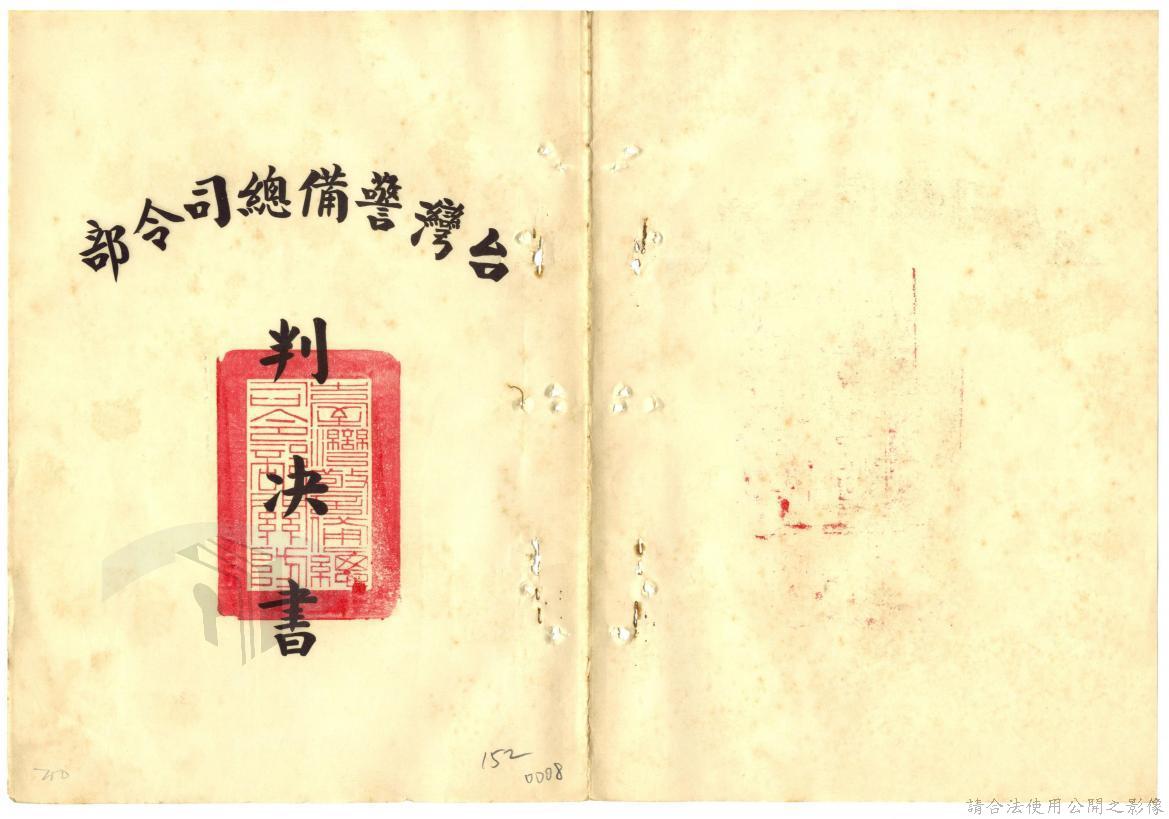 台灣警備總司令部
判決書
臺灣警備總
司令部關防
152
0008
請合法使用公開之影像